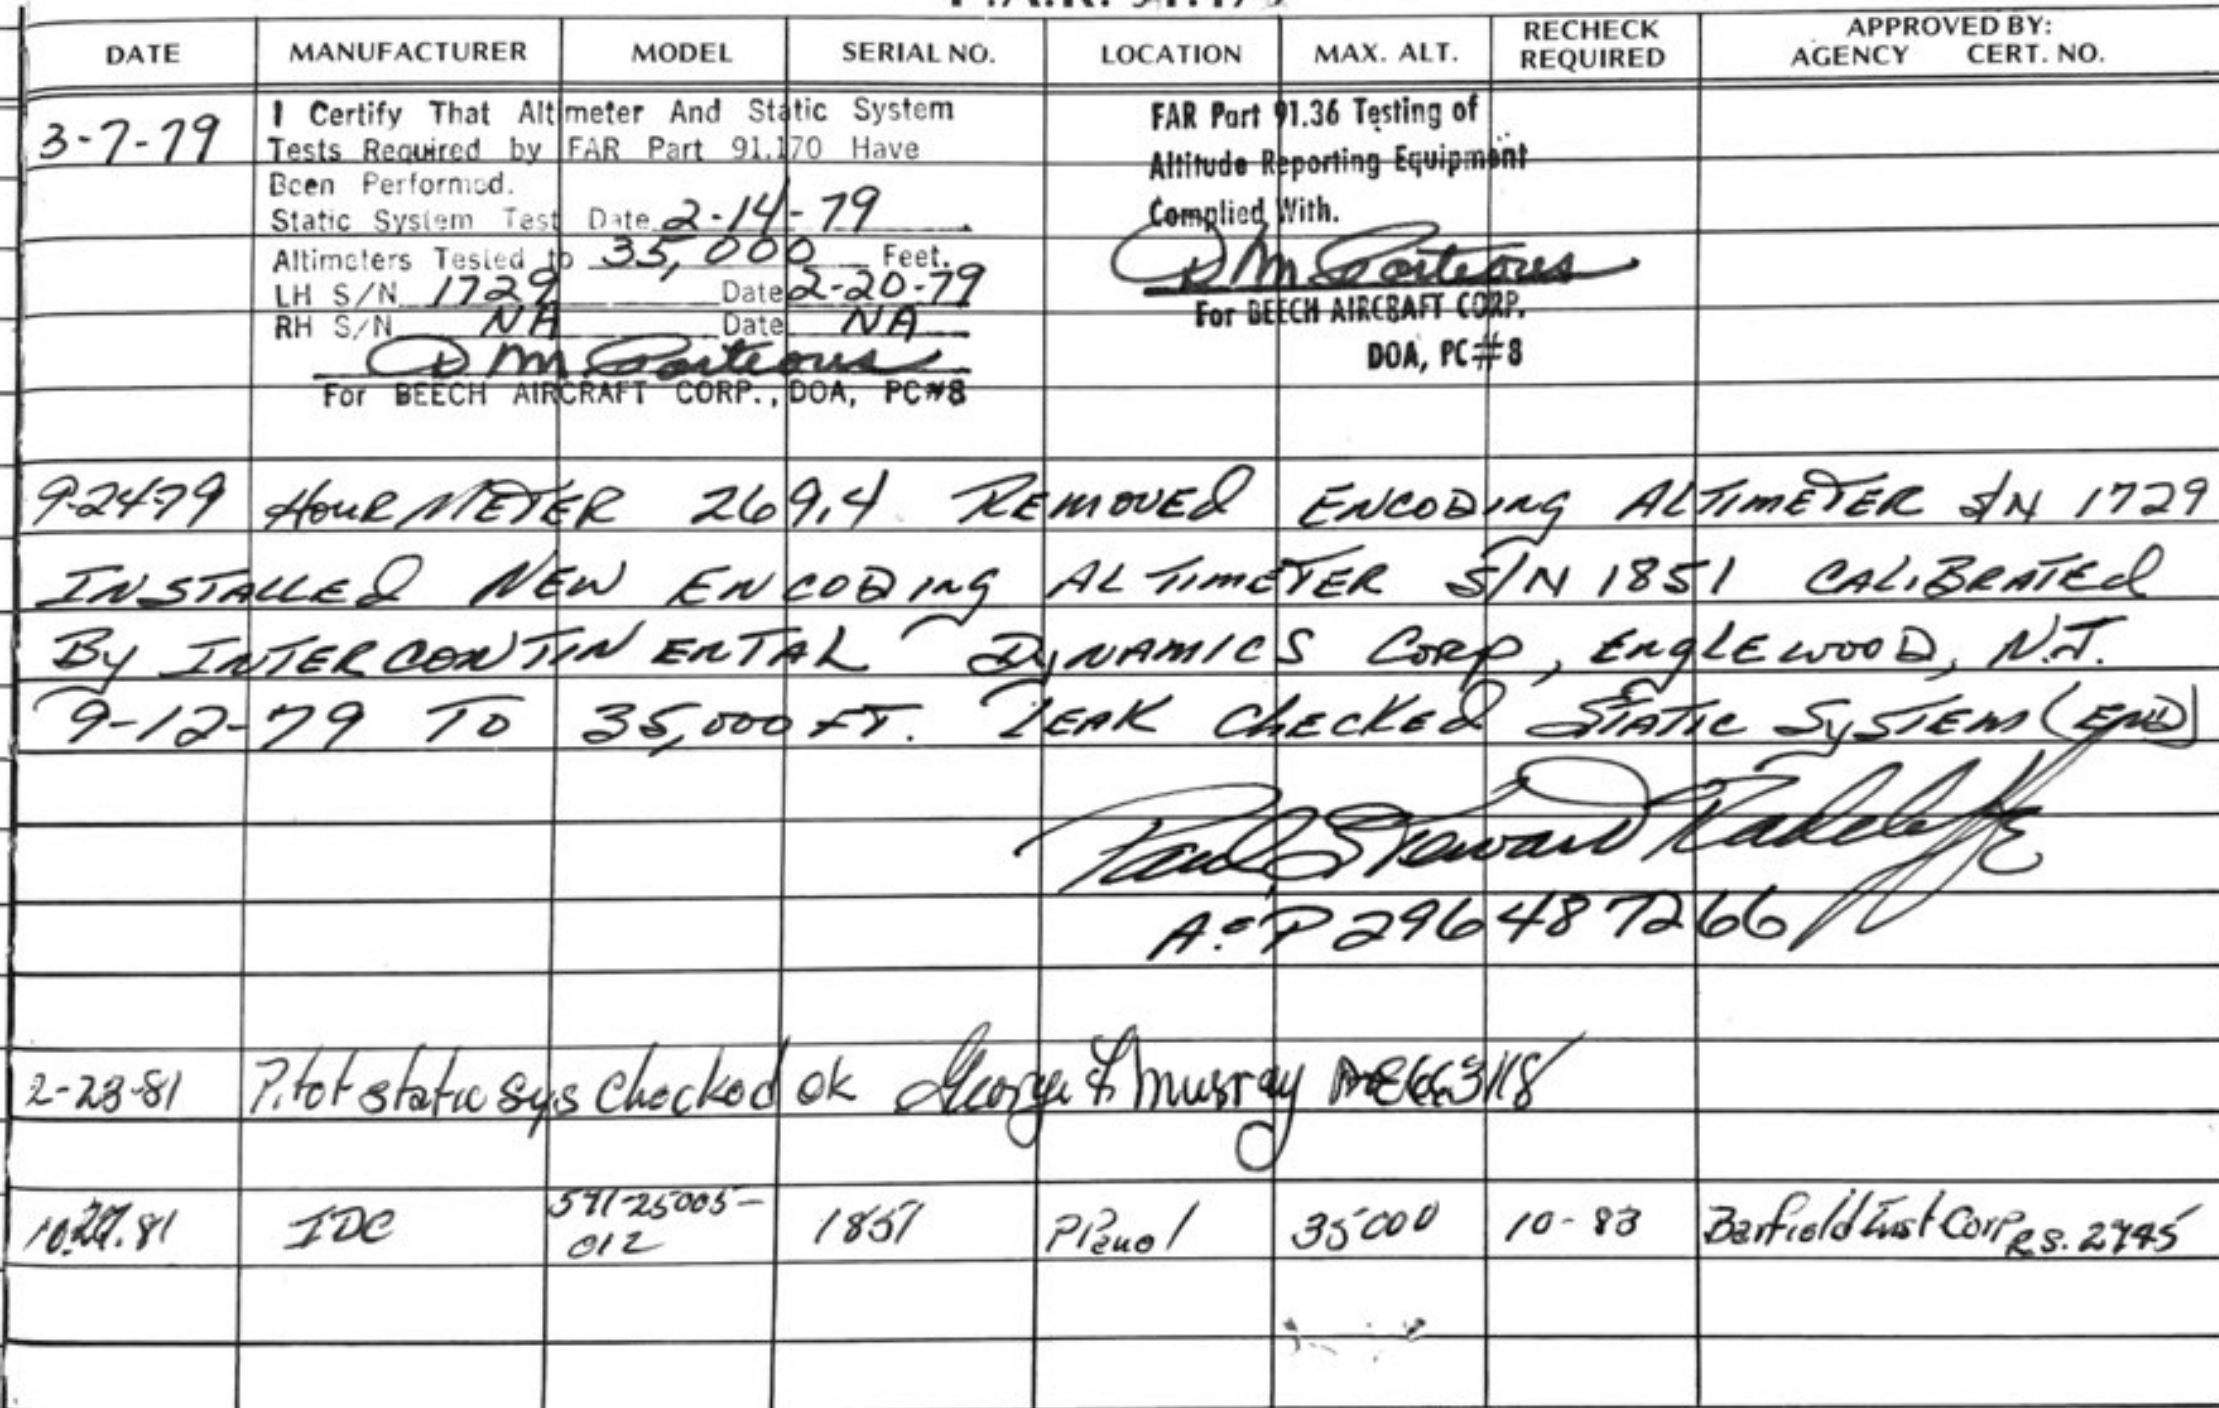 DATE MANUFACTURER MODEL SERIAL NO. LOCATION MAX. ALT. RECHECK REQUIRED APPROVED BY: AGENCY CERT. NO.
3-7-79
I Certify That Altimeter And Static System
Tests Required by FAR Part 91.170 Have
Been Performed.
Static System Test Date 2-14-79
Altimeters Tested to 35,000 Feet.
LH S/N 1729 Date 2-20-79
RH S/N NA Date NA
D M Porteous
For BEECH AIRCRAFT CORP., DOA, PC#8
FAR Part 91.36 Testing of
Altitude Reporting Equipment
Complied With.
D M Porteous
For BEECH AIRCRAFT CORP.
DOA, PC#8
9-24-79 HOUR METER 269.4 REMOVED ENCODING ALTIMETER S/N 1729
INSTALLED NEW ENCODING ALTIMETER S/N 1851 CALIBRATED
BY INTERCONTINENTAL DYNAMICS CORP, ENGLEWOOD, N.J.
9-12-79 TO 35,000 FT. LEAK CHECKED STATIC SYSTEM (END)
Paul Steward Radcliffe
A&P 296487266
2-23-81 Pitot static sys checked ok George F Murray
10.27.81 IDC 571-25005-012 1851 P Panel 35000 10-83 Barfield Inst Corp R.S. 2745